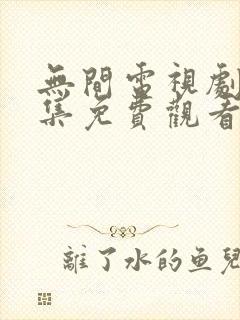 無間電視劇
集免費觀看
離了水的鱼兒